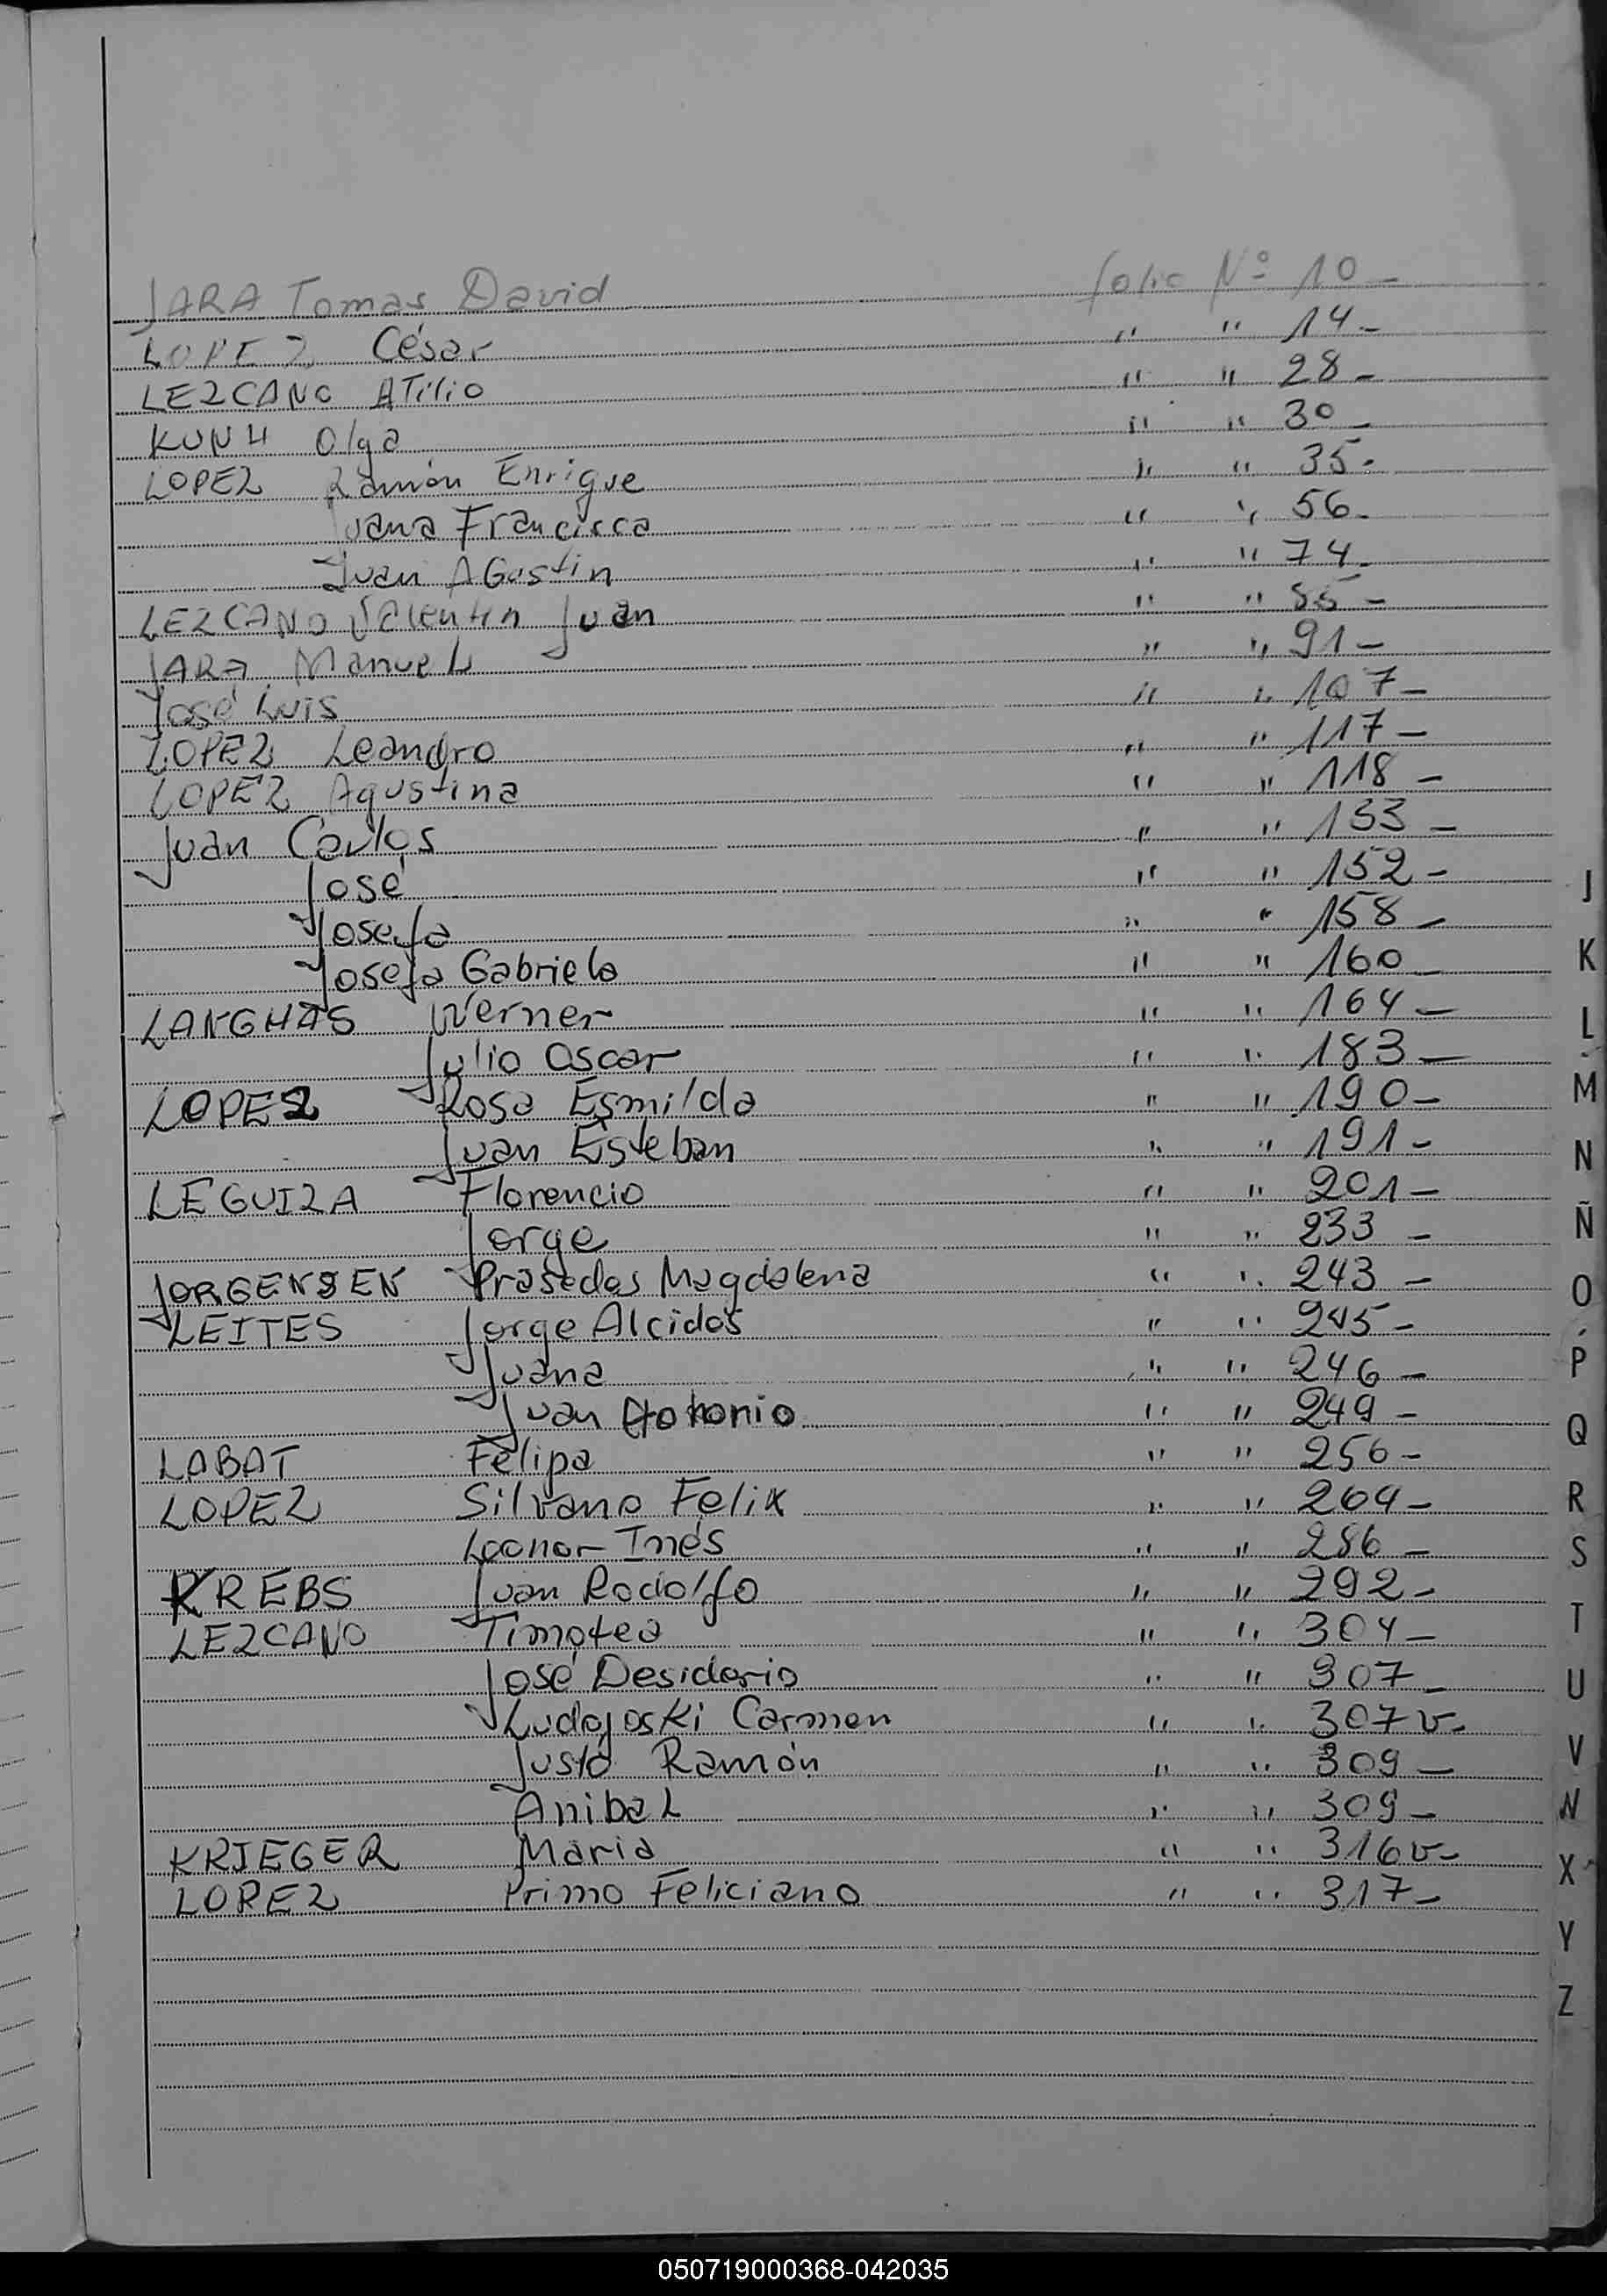 JARA Tomas David folio Nº 10-
LOPEZ César " " 14-
LEZCANO Atilio " " 28-
KUNH Olga " " 30-
LOPEZ Ramón Enrique " " 35-
Juana Francisca " " 56-
Juan Agustin " " 74-
LEZCANO Valentin Juan " " 55-
JARA Manuel " " 91-
José Luis " " 107-
LOPEZ Leandro " " 117-
LOPEZ Agustina " " 118-
Juan Carlos " " 133-
José " " 152-
Josefa " " 158-
Josefa Gabriela " " 160-
LANGHAS Werner " " 164-
Julio Oscar " " 183-
LOPEZ Rosa Esmilda " " 190-
Juan Esteban " " 191-
LEGUIZA Florencio " " 201-
Jorge " " 233-
JORGENSEN Prasedes Magdalena " " 243-
LEITES Jorge Alcides " " 245-
Juana " " 246-
Juan Antonio " " 249-
LABAT Felipa " " 256-
LOPEZ Silvano Felix " " 264-
Leonor Inés " " 286-
KREBS Juan Rodolfo " " 292-
LEZCANO Timotea " " 304-
José Desiderio " " 307-
Ludojoski Carmen " " 307v-
Justo Ramón " " 309-
Anibal " " 309-
KRIEGER Maria " " 316v-
LOPEZ Primo Feliciano " " 317-
J
K
L
M
N
Ñ
O
P
Q
R
S
T
U
V
W
X
Y
Z
050719000368-042035